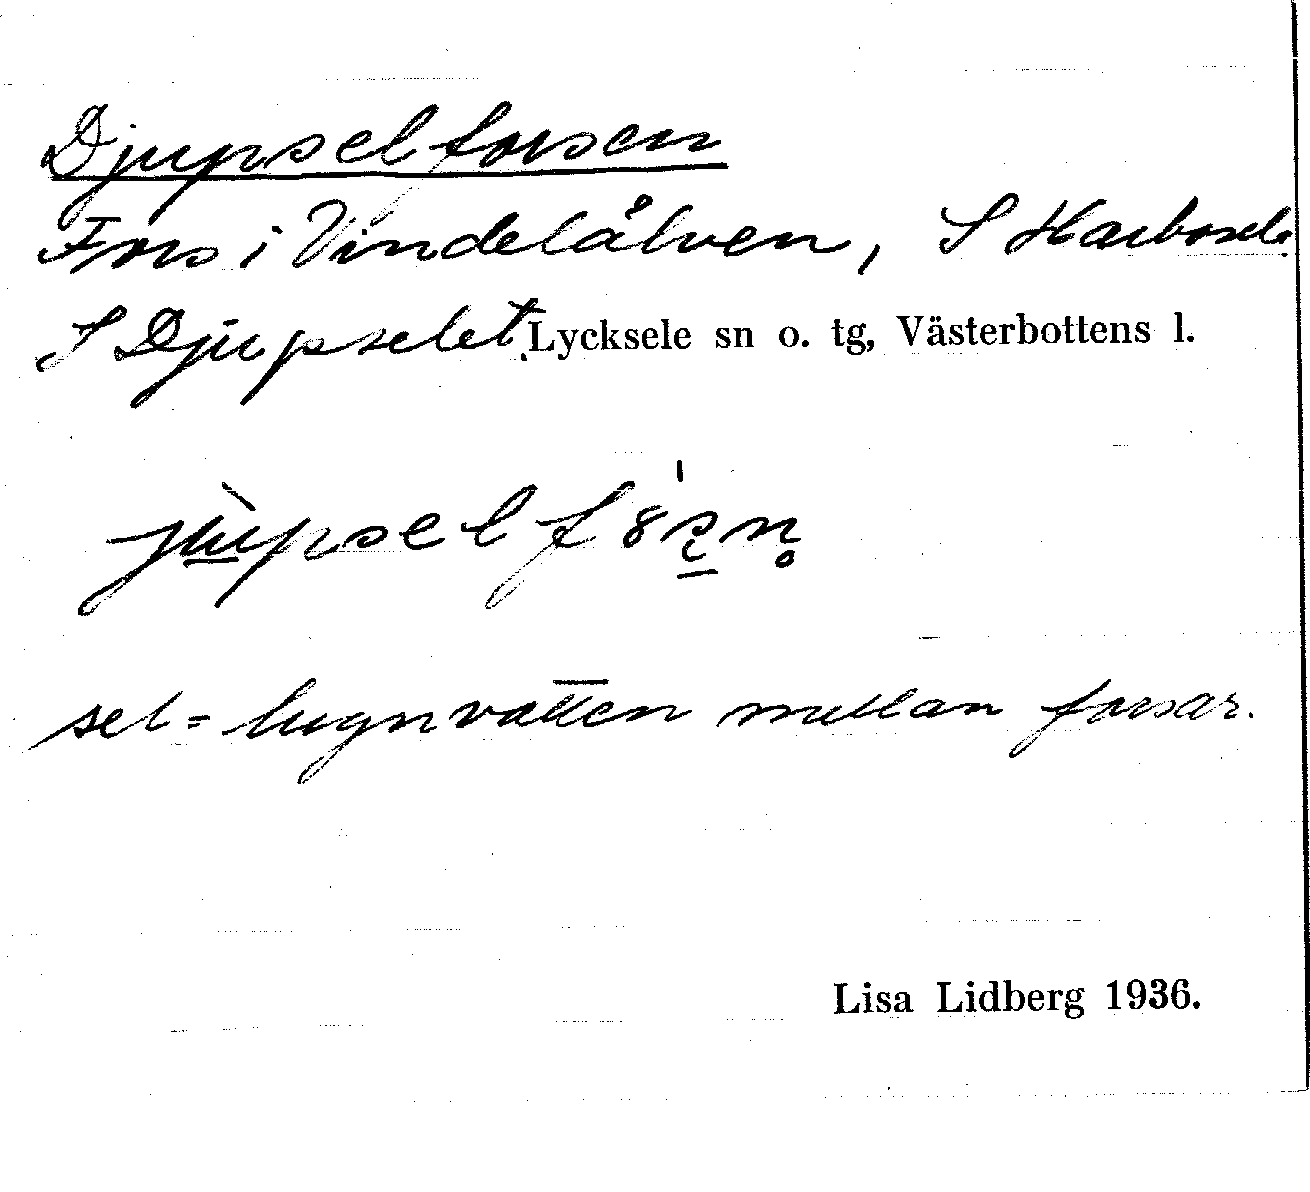 Djupselforsen
Fors i Vindelälven, S Harbosele
S Djupselet Lycksele sn o. tg, Västerbottens l.
sel = lugnvatten mellan forsar.
Lisa Lidberg 1936.